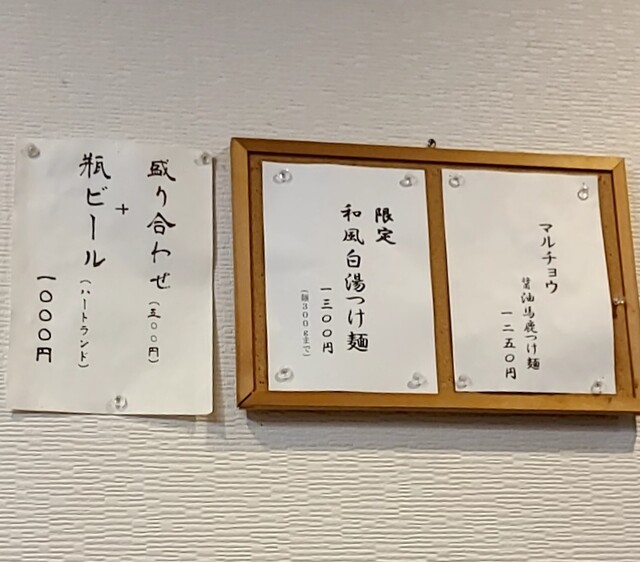 マルチョウ
醤油馬鹿つけ麺
一二五〇円
限定
和風白湯つけ麺
一三〇〇円
(麺300gまで)
盛り合わせ(五〇〇円)
+
瓶ビール(ハートランド)
一〇〇〇円